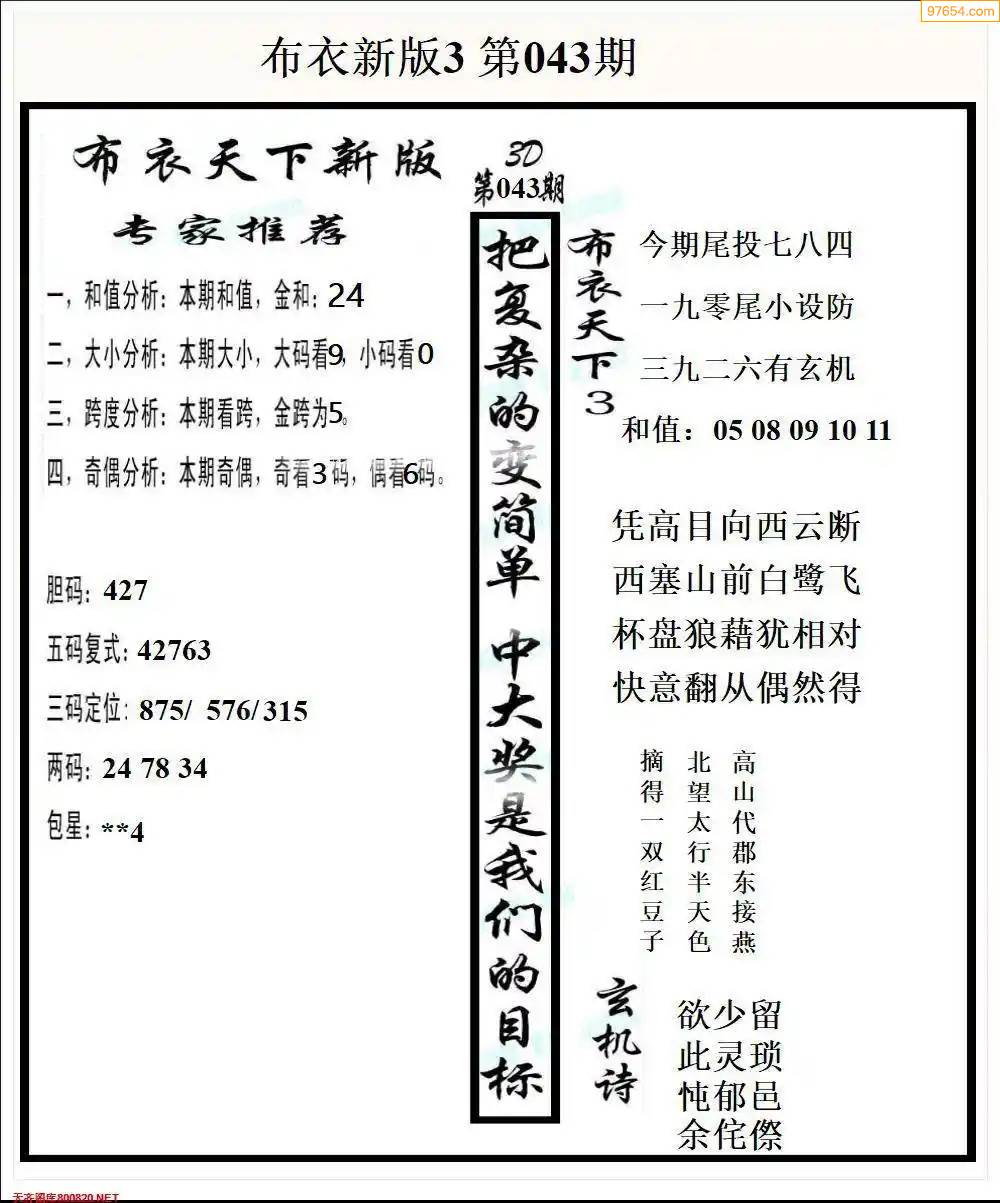 97654.com
布衣新版3 第043期
布衣天下新版
专家推荐
一，和值分析：本期和值，金和：24
二，大小分析：本期大小，大码看9，小码看0
三，跨度分析：本期看跨，金跨为5。
四，奇偶分析：本期奇偶，奇看3码，偶看6码。
胆码：427
五码复式：42763
三码定位：875/ 576/315
两码：24 78 34
包星：**4
3D
第043期
把复杂的变简单 中大奖是我们的目标
布衣天下3
今期尾投七八四
一九零尾小设防
三九二六有玄机
和值：05 08 09 10 11
凭高目向西云断
西塞山前白鹭飞
杯盘狼藉犹相对
快意翻从偶然得
高山代郡东接燕
北望太行半天色
摘得一双红豆子
玄机诗
欲少留
此灵琐
忳郁邑
余侘傺
天齐图库800820.NET